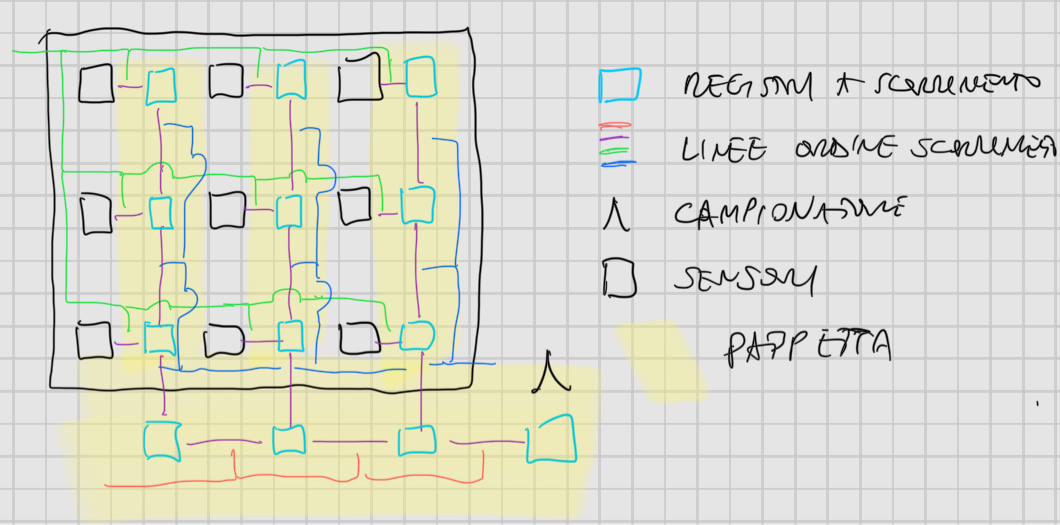 REGISTRI A SCORRIMENTO
LINEE ORDINE SCORRIMENTO
CAMPIONATORE
SENSORI
PAPPETTA